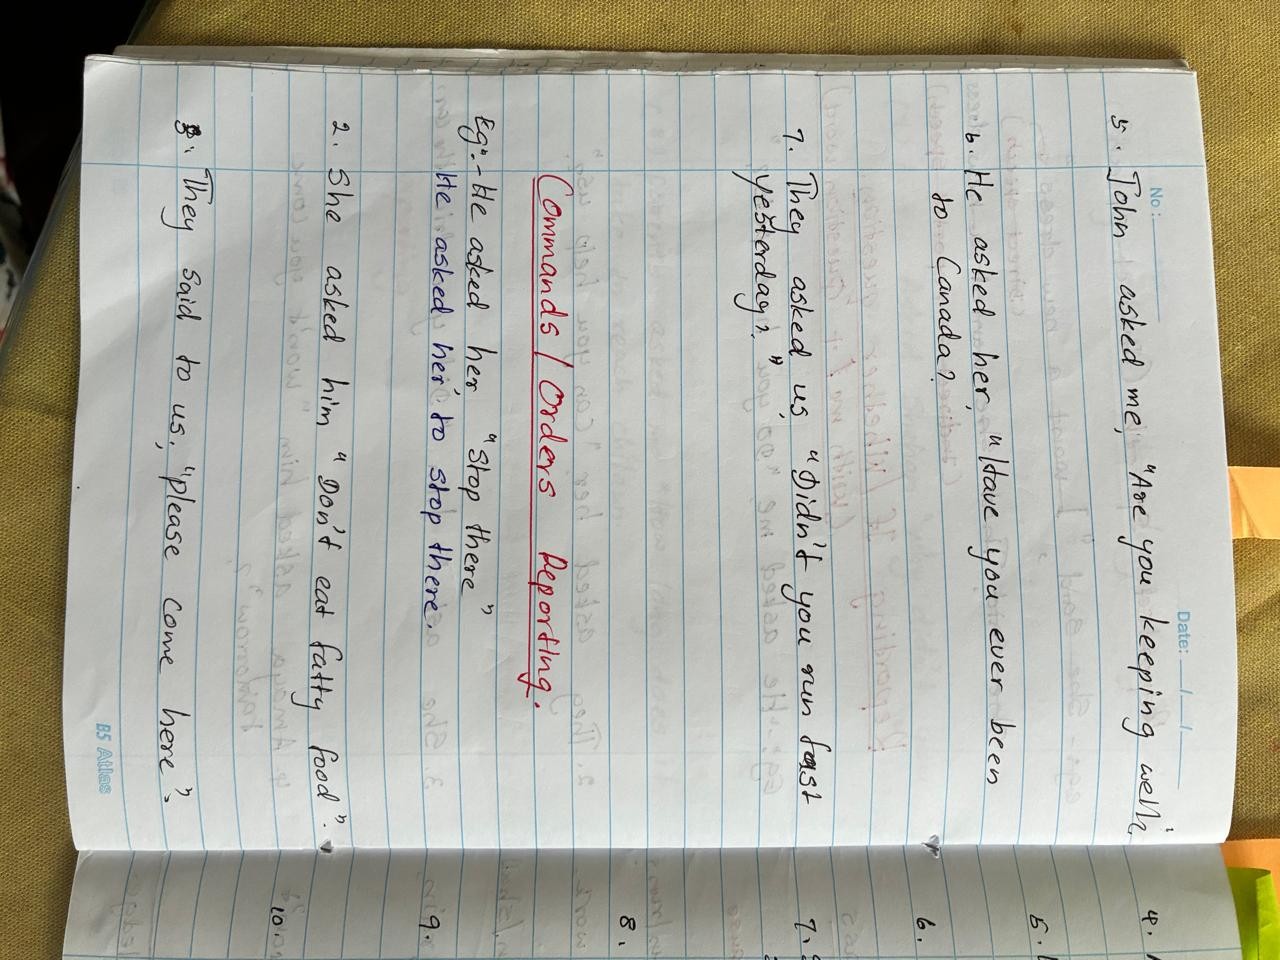 No:
Date: / /
5. John asked me, "Are you keeping well?"
6. He asked her, "Have you ever been
to Canada?
7. They asked us, "Didn't you run fast
yesterday?"
Commands / Orders Reporting.
Eg:- He asked her "Stop there"
He asked her to stop there.
2. She asked him "Don't eat fatty food".
3. They said to us, "please come here".
B5 Atlas
4.
5.
6.
7.
8.
9.
10.